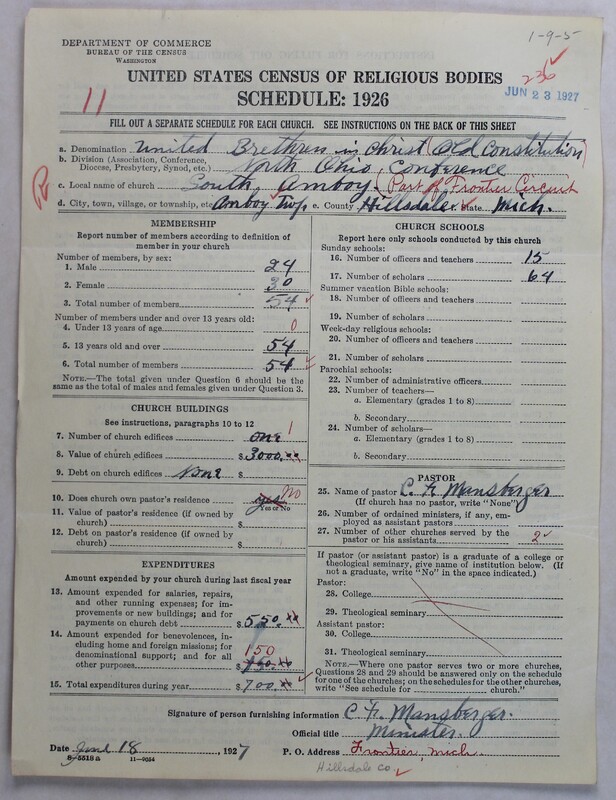 1-9-5
DEPARTMENT OF COMMERCE
BUREAU OF THE CENSUS
WASHINGTON
UNITED STATES CENSUS OF RELIGIOUS BODIES
236
JUN 23 1927
11
SCHEDULE: 1926
FILL OUT A SEPARATE SCHEDULE FOR EACH CHURCH. SEE INSTRUCTIONS ON THE BACK OF THIS SHEET
a. Denomination United Brethren in Christ (Old Constitution)
b. Division (Association, Conference, Diocese, Presbytery, Synod, etc.) North Ohio, Conference
c. Local name of church South Amboy - Part of Frontier Circuit
d. City, town, village, or township, etc. Amboy twp. e. County Hillsdale State Mich.
MEMBERSHIP
Report number of members according to definition of member in your church
Number of members, by sex:
1. Male 24
2. Female 30
3. Total number of members 54
Number of members under and over 13 years old:
4. Under 13 years of age 0
5. 13 years old and over 54
6. Total number of members 54
NOTE.—The total given under Question 6 should be the same as the total of males and females given under Question 3.
CHURCH BUILDINGS
See instructions, paragraphs 10 to 12
7. Number of church edifices one 1
8. Value of church edifices $ 3000.00
9. Debt on church edifices None
10. Does church own pastor's residence yes No
Yes or No
11. Value of pastor's residence (if owned by church) $
12. Debt on pastor's residence (if owned by church) $
EXPENDITURES
Amount expended by your church during last fiscal year
13. Amount expended for salaries, repairs, and other running expenses; for improvements or new buildings; and for payments on church debt $ 550.xx
14. Amount expended for benevolences, including home and foreign missions; for denominational support; and for all other purposes 150
15. Total expenditures during year $ 700.xx
CHURCH SCHOOLS
Report here only schools conducted by this church
Sunday schools:
16. Number of officers and teachers 15
17. Number of scholars 64
Summer vacation Bible schools:
18. Number of officers and teachers
19. Number of scholars
Week-day religious schools:
20. Number of officers and teachers
21. Number of scholars
Parochial schools:
22. Number of administrative officers
23. Number of teachers—
a. Elementary (grades 1 to 8)
b. Secondary
24. Number of scholars—
a. Elementary (grades 1 to 8)
b. Secondary
PASTOR
25. Name of pastor C. F. Mansberger
(If church has no pastor, write "None")
26. Number of ordained ministers, if any, employed as assistant pastors
27. Number of other churches served by the pastor or his assistants 2
If pastor (or assistant pastor) is a graduate of a college or theological seminary, give name of institution below. (If not a graduate, write "No" in the space indicated.)
Pastor:
28. College
29. Theological seminary
Assistant pastor:
30. College
31. Theological seminary
NOTE.—Where one pastor serves two or more churches, Questions 28 and 29 should be answered only on the schedule for one of the churches; on the schedules for the other churches, write "See schedule for church."
Signature of person furnishing information C. F. Mansberger.
Official title Minister.
Date June 18, 1927 P. O. Address Frontier, Mich.
8-5518a 11-9034
Hillsdale Co